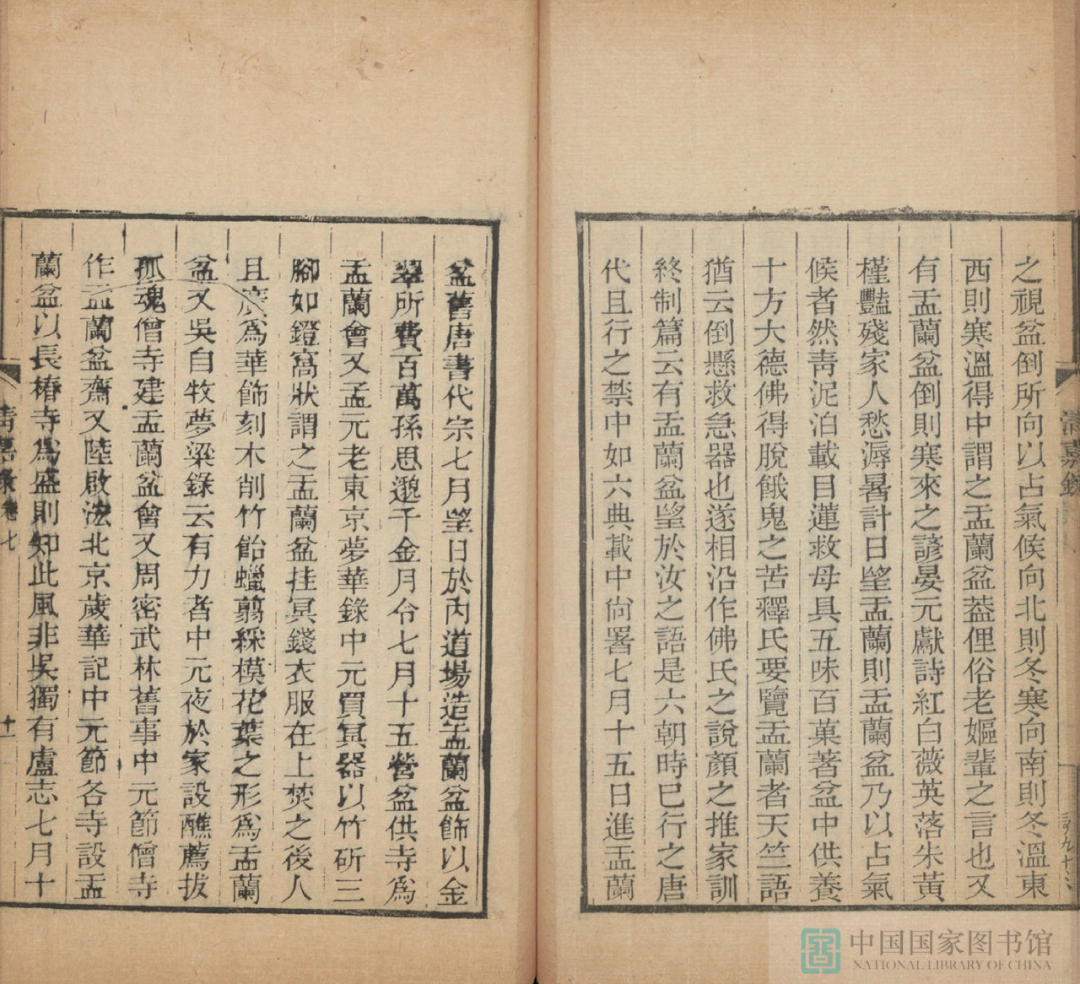 之視盆倒所向以占氣候向北則冬寒向南則冬溫東
西則寒溫得中謂之盂蘭盆葢俚俗老嫗輩之言也又
有盂蘭盆倒則寒來之諺晏元獻詩紅白薇英落朱黃
槿豔殘家人愁溽暑計日朢盂蘭則盂蘭盆乃以占氣
候者然靑泥泊載目蓮救母具五味百菓著盆中供養
十方大德佛得脫餓鬼之苦釋氏要覽盂蘭者天竺語
猶云倒懸救急器也遂相沿作佛氏之說顏之推家訓
終制篇云有盂蘭盆朢於汝之語是六朝時已行之唐
代且行之禁中如六典載中尙署七月十五日進盂蘭
盆舊唐書代宗七月朢日於內道場造盂蘭盆飾以金
翠所費百萬孫思邈千金月令七月十五營盆供寺爲
盂蘭會又孟元老東京夢華錄中元買冥器以竹斫三
腳如鐙窩狀謂之盂蘭盆挂冥錢衣服在上焚之後人
且廣爲華飾刻木削竹飴蠟翦綵模花葉之形爲盂蘭
盆又吳自牧夢粱錄云有力者中元夜於家設醮薦拔
孤魂僧寺建盂蘭盆會又周密武林舊事中元節僧寺
作盂蘭盆齋又陸啟浤北京歲華記中元節各寺設盂
蘭盆以長椿寺爲盛則知此風非吳獨有盧志七月十
清嘉錄
清嘉錄卷七
十一
中国国家图书馆
NATIONAL LIBRARY OF CHINA